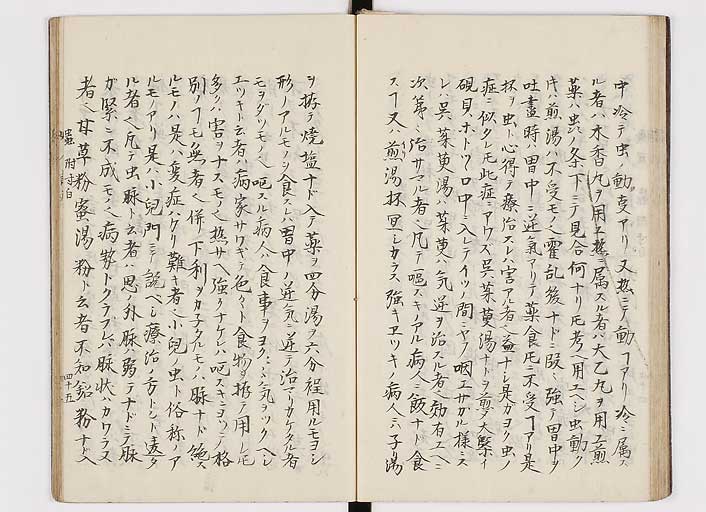 中冷テ虫ノ動クアリ又熱ニテ動クヿアリ冷ニ属ス
ル者ハ木香丸ヲ用エ熱ニ属スル者ハ大乙丸ヲ用エ煎
薬ハ虫ノ条下ニテ見合何ナリ𪜈考ヘ用エヘシ虫動ク
片ハ煎湯ハ不受モノ也霍乱後ナドニ殴強テ胃中ヲ
吐盡時ハ胃中ニ逆気アリテ薬食𪜈ニ不受ヿアリ是
杯ヲ虫ト心得テ療治スレハ害アル者也益ナシ是ガヨク虫ノ
症ニ似タレ𪜈此症ニアワズ呉茱萸湯ナドヲ煎メ大緊イ
硯貝ホトツヽ口中ニ入レテイツノ間ニヤラ咽エサガル様ニス
レハ呉茱萸湯ハ茱萸ハ気逆ヲ治スル者也効有エヘニ
次第ニ治サマル者也凡テ嘔スキアル病人ニ飯ナド食
スヿ又ハ煎湯杯宜シカラス強キヱツキノ病人ニ子ノ湯
ヲ拵テ焼塩ナド入テ薬ヲ四分湯ヲ六分程用ルモヨシ
形ノアルモノヲ食スレハ胃中ノ逆気ニ逆テ治マリカケタル者
モヲダツモノ也嘔スル病人ハ食事ヲヨク〻気ヲツクヘシ
エツキト云者ハ病家サワギテ色々ト食物ヲ拵テ用レ𪜈
多クハ害ヲナスモノ也熱サヘ強クナケレハ嘔スキニヨツテ格
別ノヿモ無者也併下利ヲカネタルモノハ脉ナド絶ス
ルモノハ是ハ変症ハカリ難キ者也小児ノ虫ト俗称ノア
ルモノアリ是ハ小児門ニテ説ベシ療治ノ方トシト違タ
ル者也凡テ虫脉ト云者ハ思ノ外脉ハ弱テナドニテ脉
ガ緊ニ不成モノ也病勢トクラブレバ脉状ハカワラス
者也甘草粉蜜湯粉ト云者不知鉛粉ナド入
蟲 附寸白
四十五